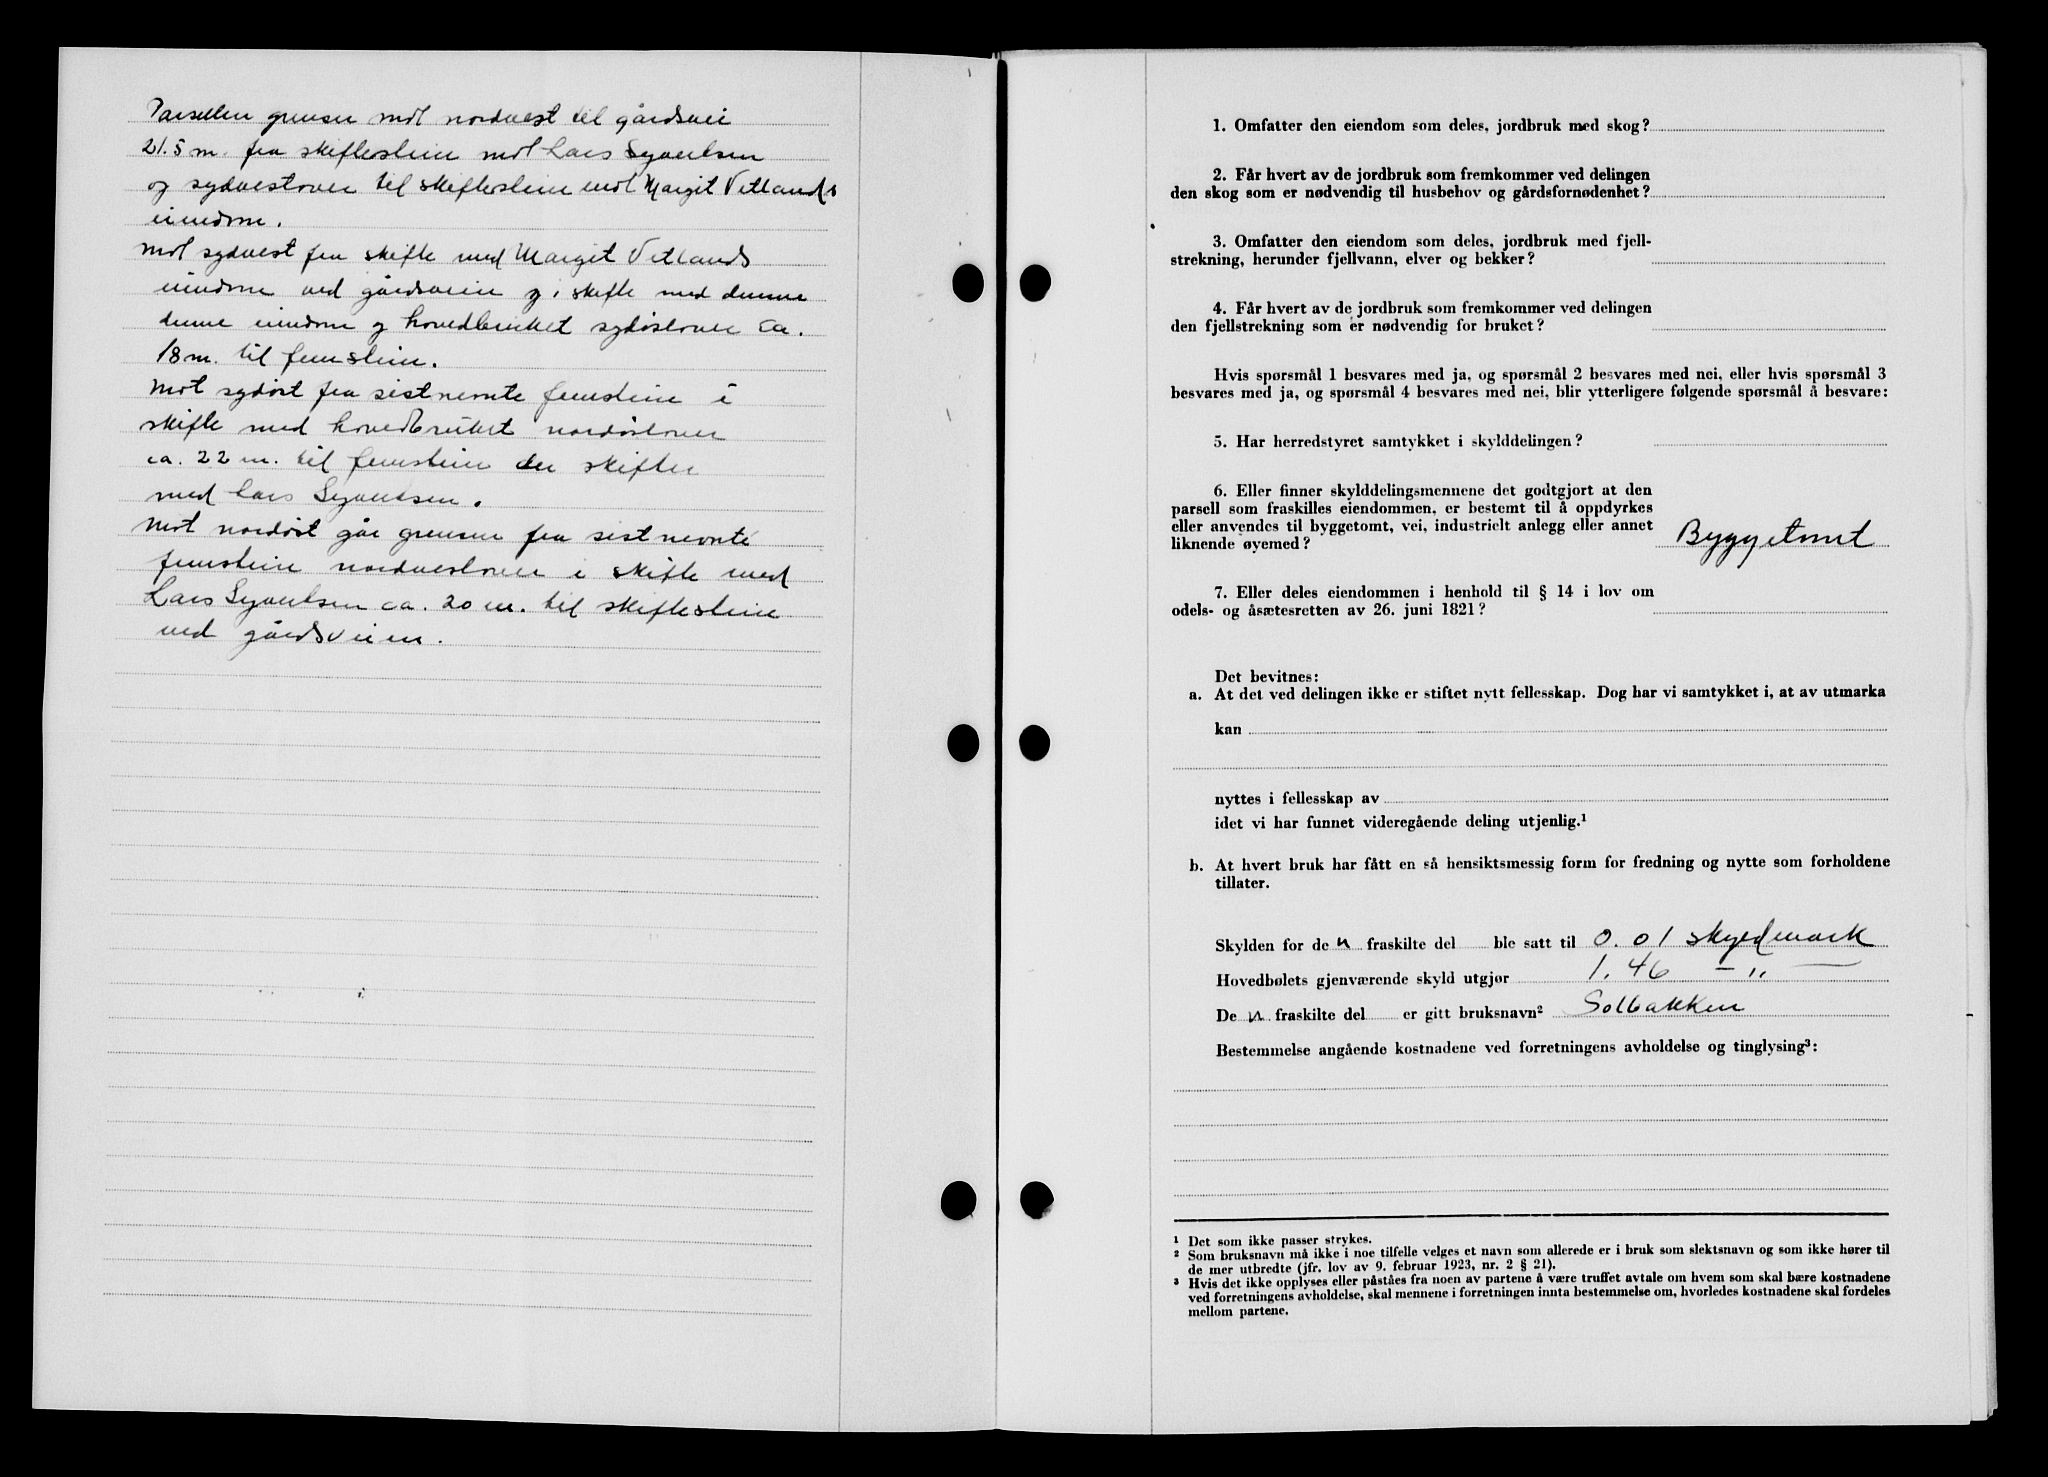 Parsellen grenser mot nordvest til gårdsvei
21.5 m. fra skiftestein mot Lars Syvertsen
og sydvestover til skiftestein mot Margit Vetlands
eiendom.
Mot sydvest fra skifte med Margit Vetlands
eiendom ved gårdsveien og i skifte med denne
denne eiendom og hovedbruket sydøstover ca.
18 m. til femstein.
Mot sydøst fra sistnevnte femstein i
skifte med hovedbruket nordøstover
ca. 22 m. til femstein der skifter
med Lars Syvertsen.
Mot nordøst går grensen fra sistnevnte
femstein nordvestover i skifte med
Lars Syvertsen ca. 20 m. til skiftestein
ved gårdsveien.
1. Omfatter den eiendom som deles, jordbruk med skog?
2. Får hvert av de jordbruk som fremkommer ved delingen
den skog som er nødvendig til husbehov og gårdsfornødenhet?
3. Omfatter den eiendom som deles, jordbruk med fjell-
strekning, herunder fjellvann, elver og bekker?
4. Får hvert av de jordbruk som fremkommer ved delingen
den fjellstrekning som er nødvendig for bruket?
Hvis spørsmål 1 besvares med ja, og spørsmål 2 besvares med nei, eller hvis spørsmål 3
besvares med ja, og spørsmål 4 besvares med nei, blir ytterligere følgende spørsmål å besvare:
5. Har herredstyret samtykket i skylddelingen?
6. Eller finner skylddelingsmennene det godtgjort at den
parsell som fraskilles eiendommen, er bestemt til å oppdyrkes
eller anvendes til byggetomt, vei, industrielt anlegg eller annet
liknende øyemed? Byggetomt
7. Eller deles eiendommen i henhold til § 14 i lov om
odels- og åsætesretten av 26. juni 1821?
Det bevitnes:
a. At det ved delingen ikke er stiftet nytt fellesskap. Dog har vi samtykket i, at av utmarka
kan
nyttes i fellesskap av
idet vi har funnet videregående deling utjenlig.¹
b. At hvert bruk har fått en så hensiktsmessig form for fredning og nytte som forholdene
tillater.
Skylden for de n fraskilte del ble satt til 0.01 skyldmark
Hovedbølets gjenværende skyld utgjør 1.46 — „ —
De n fraskilte del er gitt bruksnavn² Solbakken
Bestemmelse angående kostnadene ved forretningens avholdelse og tinglysing³:
¹ Det som ikke passer strykes.
² Som bruksnavn må ikke i noe tilfelle velges et navn som allerede er i bruk som slektsnavn og som ikke hører til
de mer utbredte (jfr. lov av 9. februar 1923, nr. 2 § 21).
³ Hvis det ikke opplyses eller påståes fra noen av partene å være truffet avtale om hvem som skal bære kostnadene
ved forretningens avholdelse, skal mennene i forretningen innta bestemmelse om, hvorledes kostnadene skal fordeles
mellom partene.